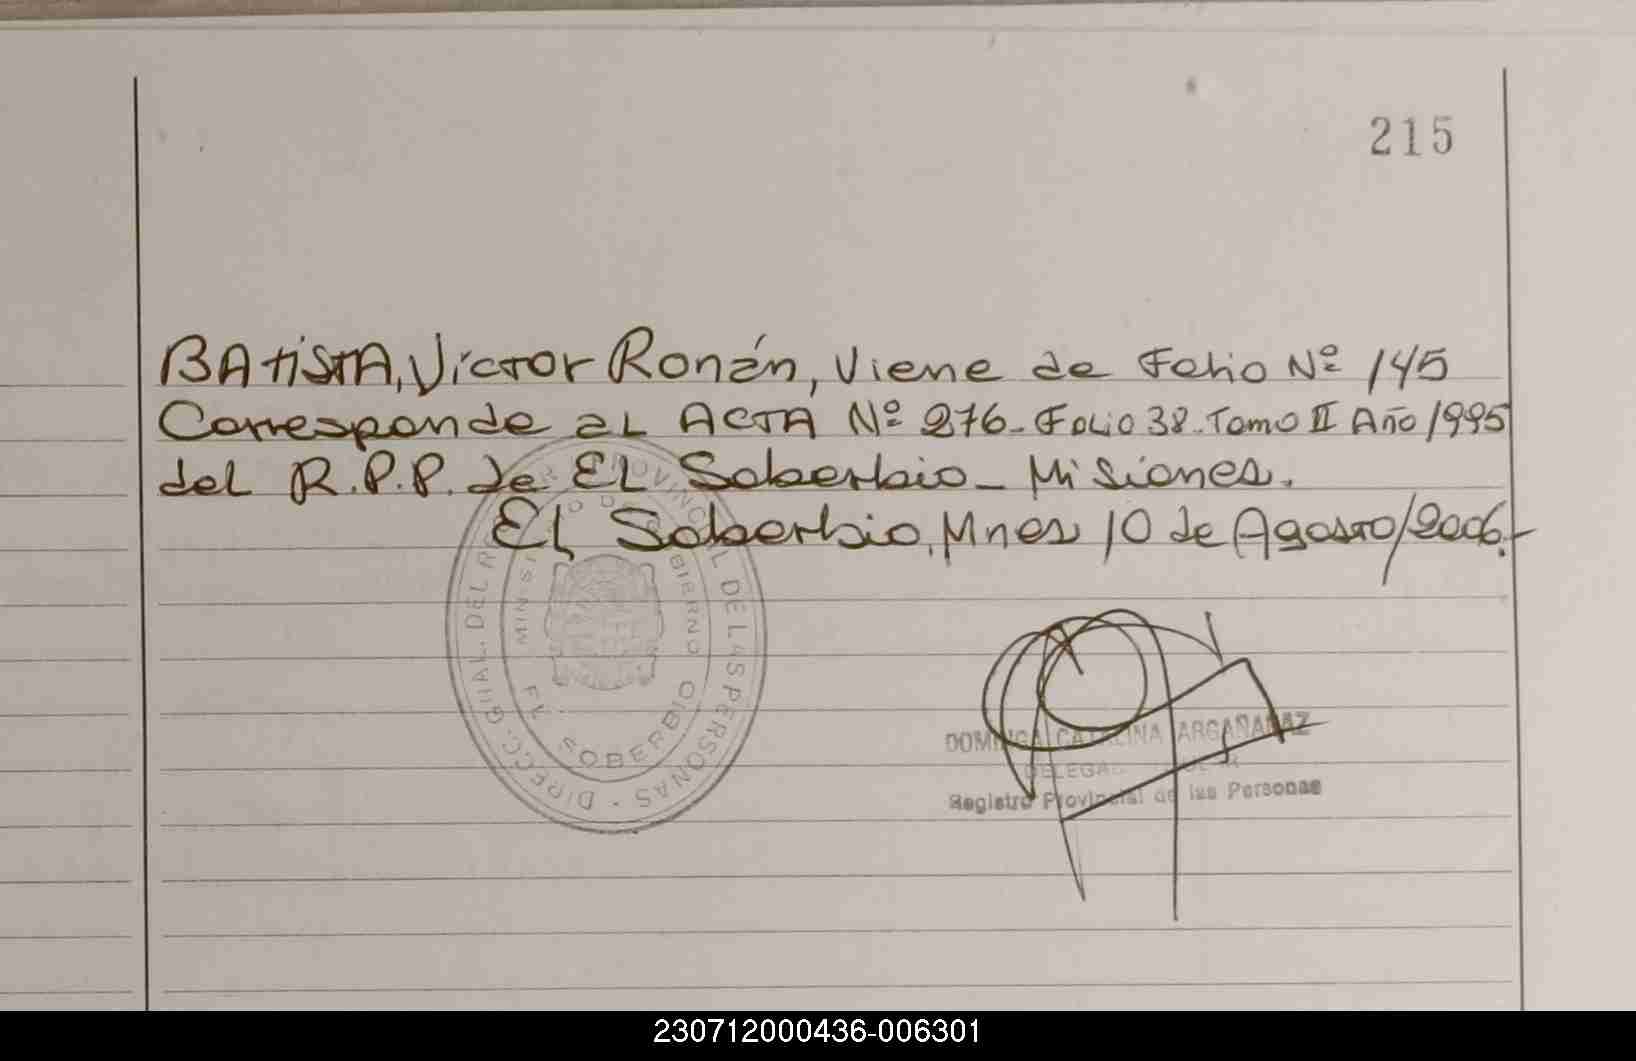 215
BAtiSTA, Víctor Ronán, Viene de Folio Nº 145
Corresponde al ACTA Nº 276. Folio 38. Tomo II Año 1995
del R.P.P. de El Soberbio - Misiones.
El Soberbio, Mnes 10 de Agosto/2006.-
DIRECC. GRAL. DEL PROVINCIAL DE LAS PERSONAS
GOBIERNO
EL SOBERBIO
DOMINGA CATALINA ARGAÑARAZ
Registro Provincial de las Personas
230712000436-006301